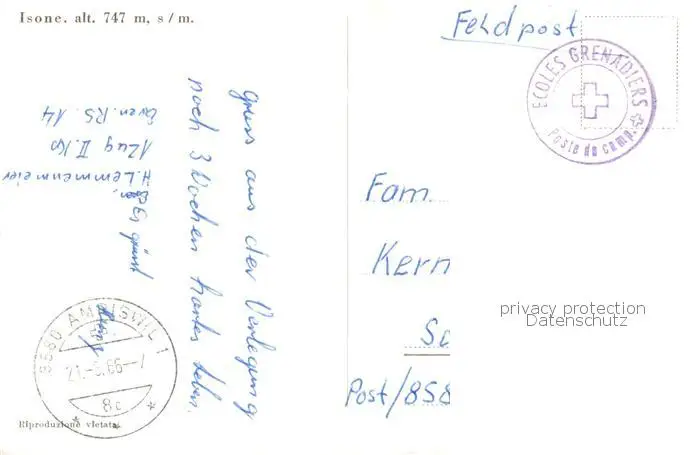 Isone. alt. 747 m, s/m.
Feldpost
ECOLES GRENADIERS
Poste de camp.
Gruss aus der Verlegung
noch 3 Wochen hartes Leben.
Es grüsst
H. Lemmenmeier
1 Zug II. Kp
Gren. RS. 14
Fam.
Kern
Sc
Post/858
privacy protection
Datenschutz
8580 AMRISWIL 1
8c
Riproduzione vietata